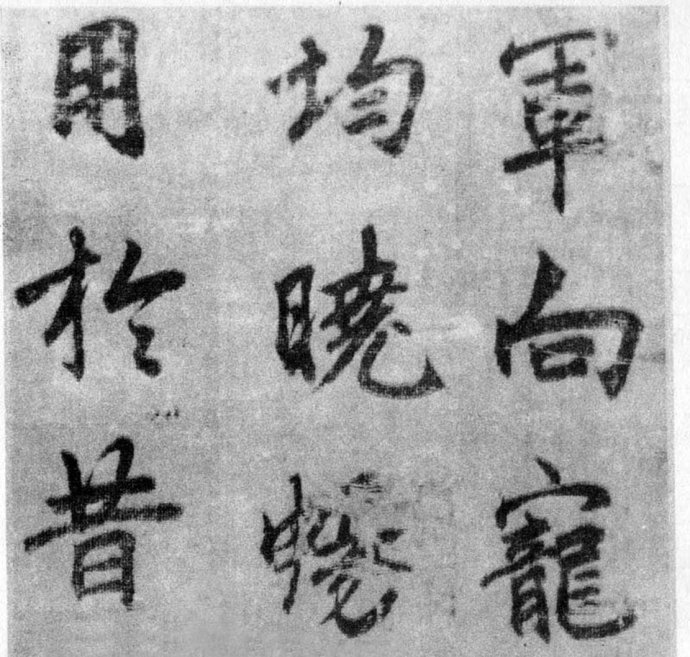 軍向寵
均曉暢
用於昔